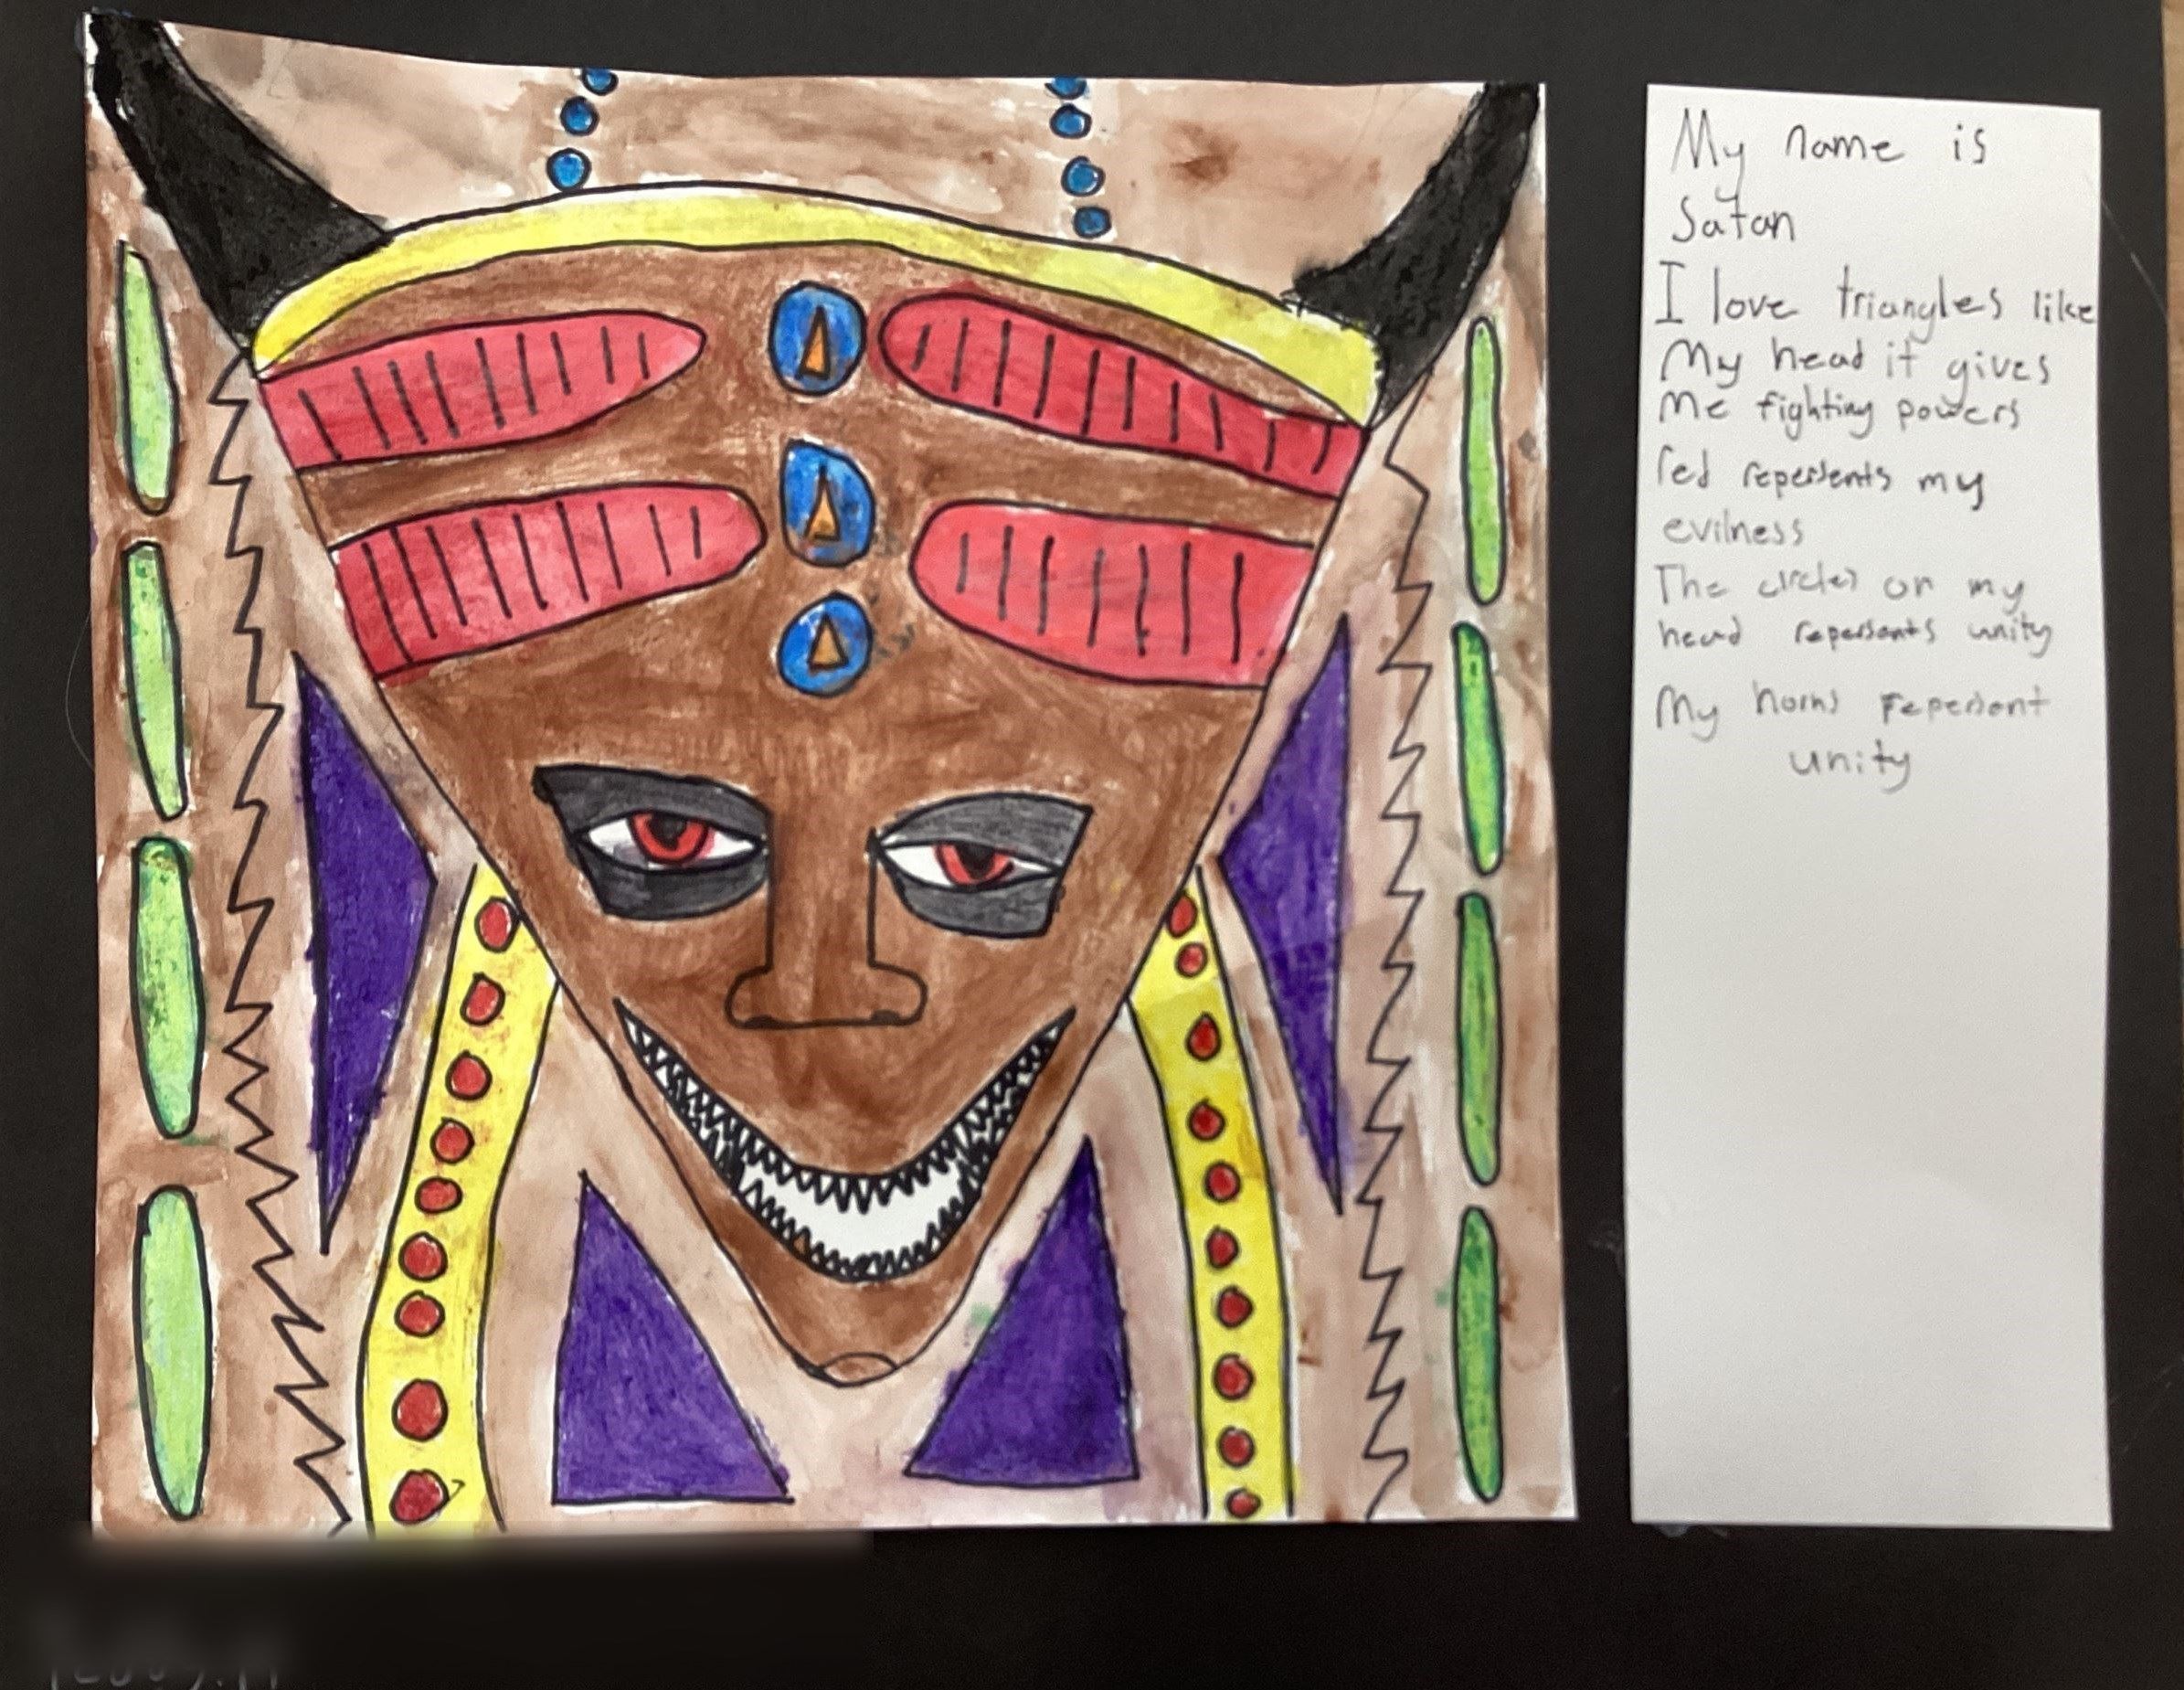 My name is
Satan
I love triangles like
My head it gives
Me fighting powers
red repersents my
evilness
The circles on my
head repersants unity
My horns repersont
unity